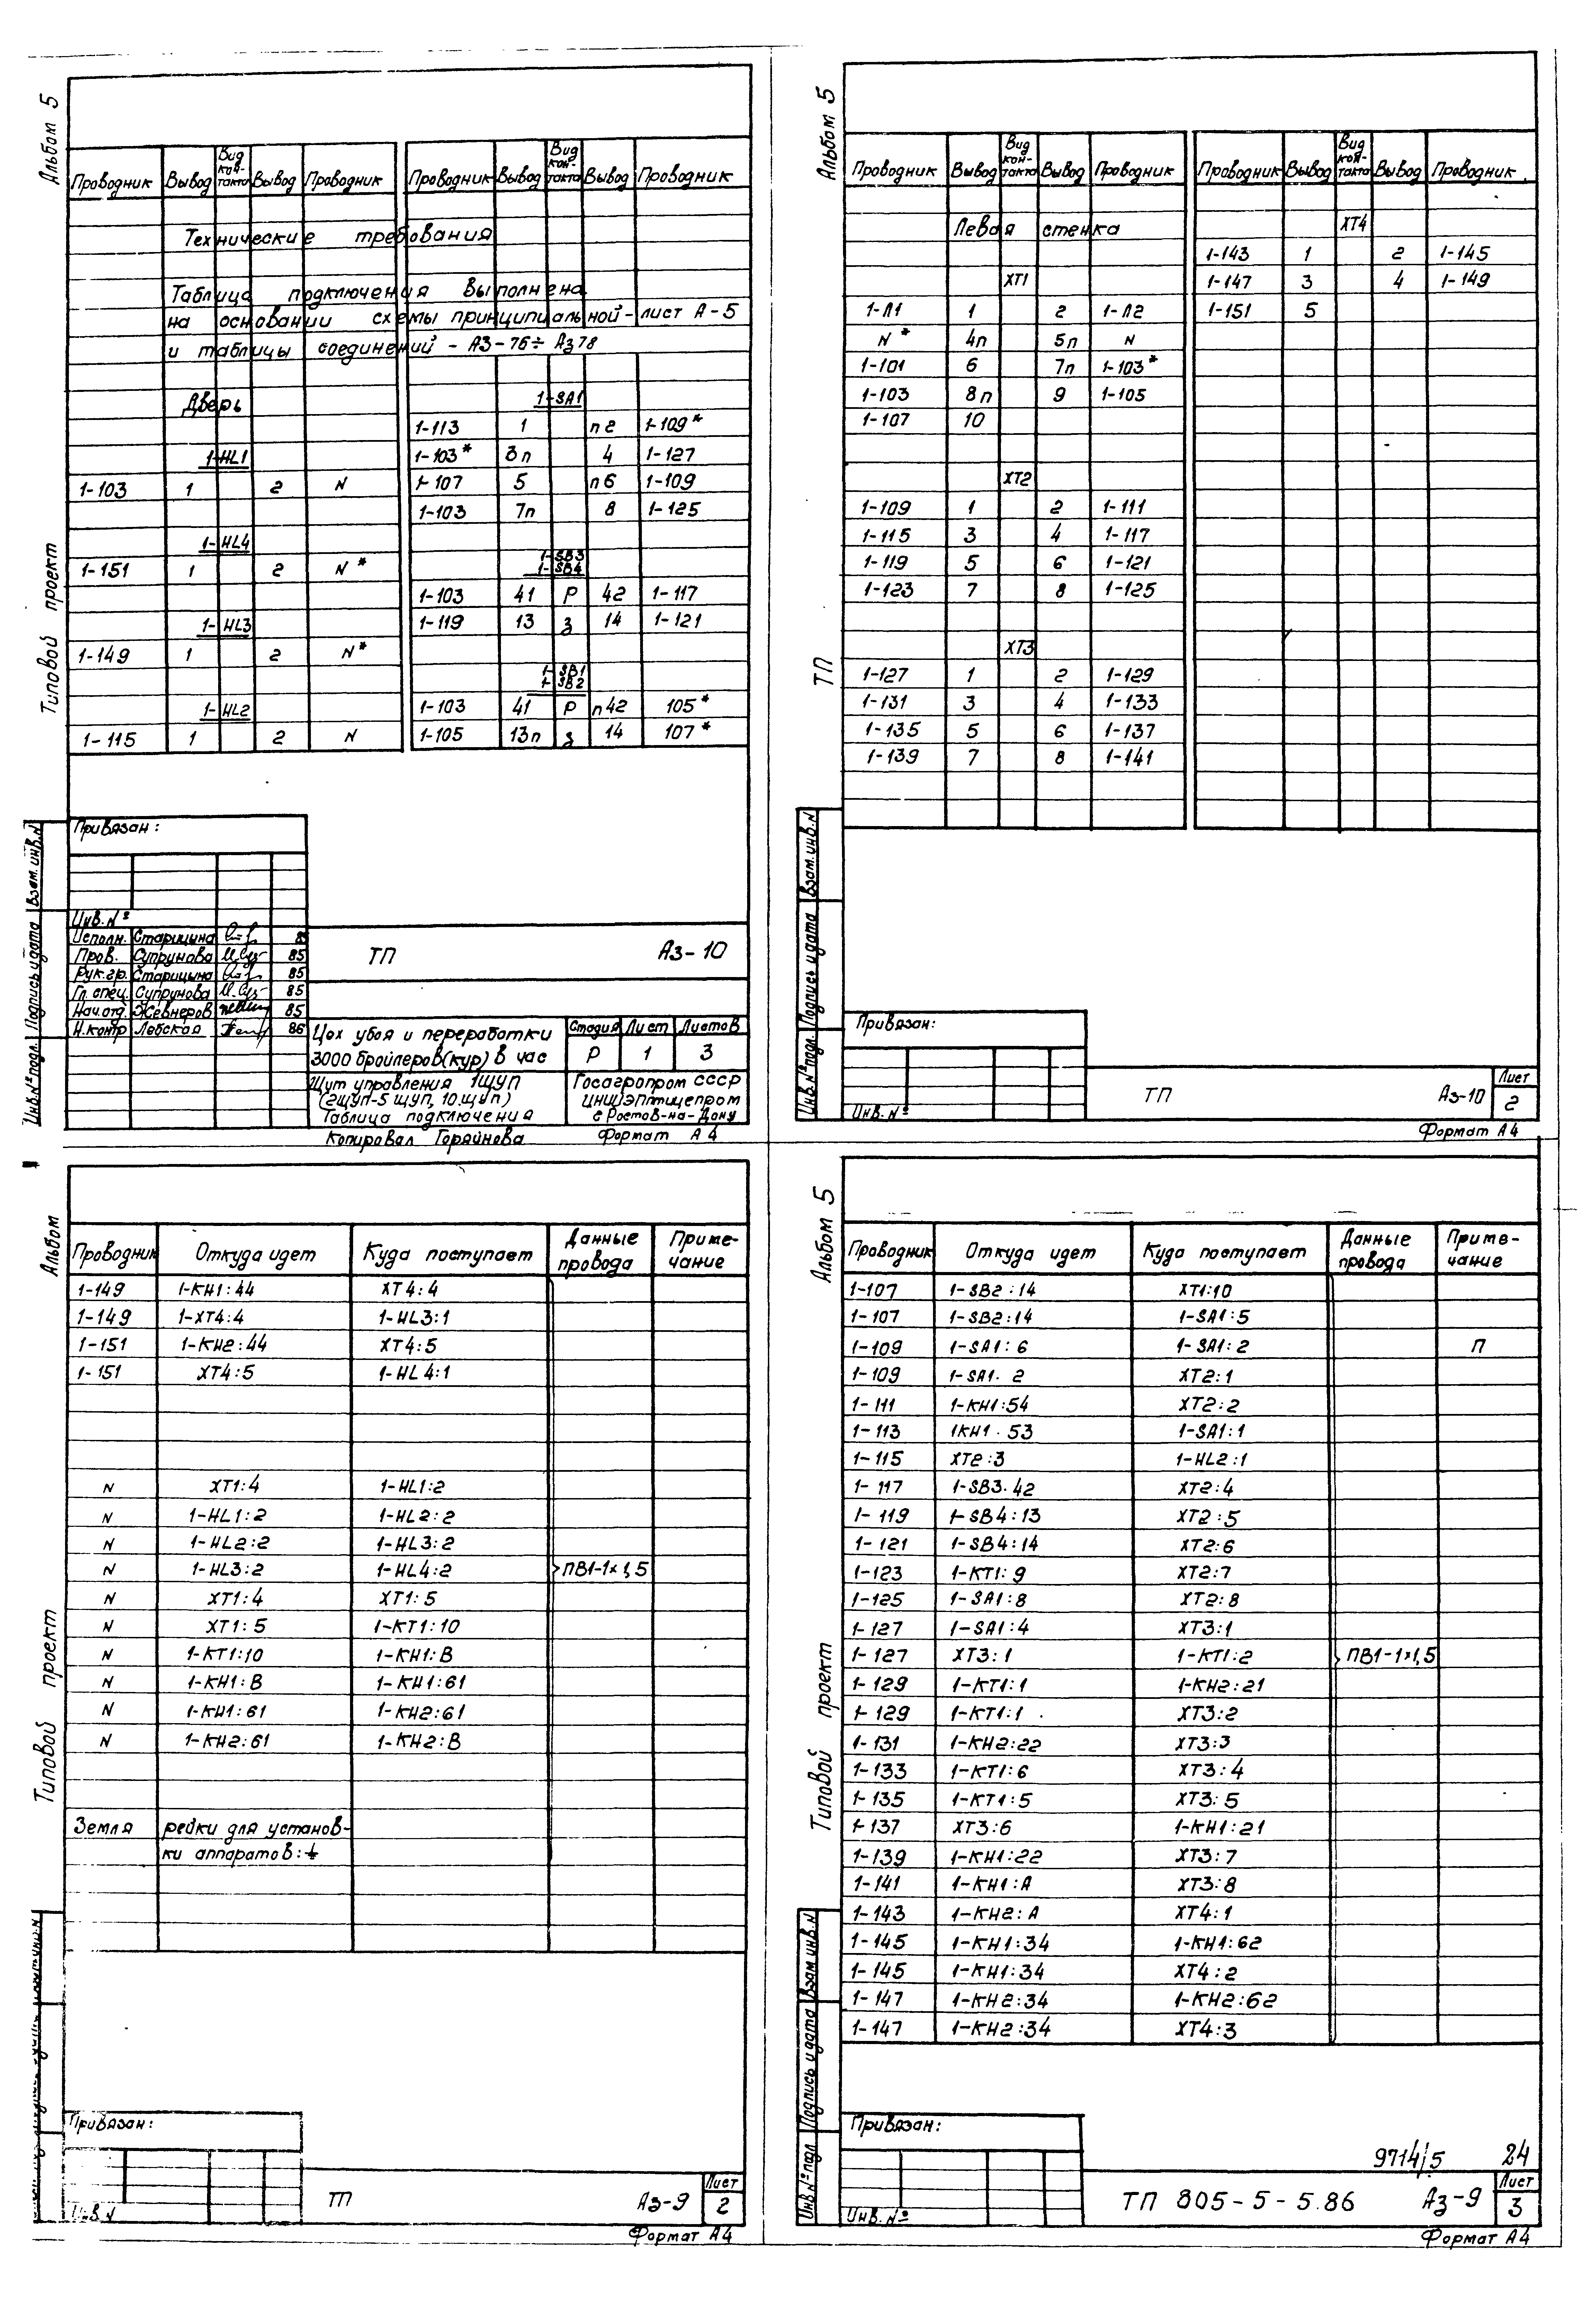 Альбом 5
Типовой проект
Проводник Вывод Вид кон-такта Вывод Проводник Проводник Вывод Вид кон-такта Вывод Проводник
Технические требования
Таблица подключения выполнена
на основании схемы принципиальной - лист А-5
и таблицы соединений - АЗ-76÷ АЗ 78
Дверь
1-HL1
1-103 1 2 N
1-HL4
1-151 1 2 N*
1-HL3
1-149 1 2 N*
1-HL2
1-115 1 2 N
1-SA1
1-113 1 п2 1-109*
1-103* 3п 4 1-127
1-107 5 п6 1-109
1-103 7п 8 1-125
1-SB3
1-SB4
1-103 41 Р 42 1-117
1-119 13 з 14 1-121
1-SB1
1-SB2
1-103 41 Р п42 105*
1-105 13п з 14 107*
Привязан:
Инв. №
Исполн. Старицына 85
Пров. Супрунова 85
Рук.гр. Старицына 85
Гл. спец. Супрунова 85
Нач.отд. Жевнеров 85
Н.контр Лебская 86
ТП АЗ-10
Цех убоя и переработки
3000 бройлеров(кур) в час
Стадия Лист Листов
Р 1 3
Щит управления 1ЩУП
(2ЩУП-5 ЩУП, 10.ЩУП)
Таблица подключения
Госагропром СССР
г Ростов-на-Дону
Копировал Горяйнова Формат А4
Инв.№ подл. Подпись и дата Взам.инв.N
Альбом 5
ТП
Проводник Вывод Вид кон-такта Вывод Проводник Проводник Вывод Вид кон-такта Вывод Проводник
Левая стенка
ХТ1
1-Л1 1 2 1-Л2
N* 4п 5п N
1-101 6 7п 1-103*
1-103 8п 9 1-105
1-107 10
ХТ2
1-109 1 2 1-111
1-115 3 4 1-117
1-119 5 6 1-121
1-123 7 8 1-125
ХТ3
1-127 1 2 1-129
1-131 3 4 1-133
1-135 5 6 1-137
1-139 7 8 1-141
ХТ4
1-143 1 2 1-145
1-147 3 4 1-149
1-151 5
Инв.№ подл. Подпись и дата Взам.инв.N
Привязан:
Инв. №
ТП АЗ-10
Лист
2
Формат А4
Альбом
Типовой проект
Проводник Откуда идет Куда поступает Данные провода Приме-чание
1-149 1-КН1:44 ХТ4:4
1-149 1-ХТ4:4 1-HL3:1
1-151 1-КН2:44 ХТ4:5
1-151 ХТ4:5 1-HL4:1
N ХТ1:4 1-HL1:2
N 1-HL1:2 1-HL2:2
N 1-HL2:2 1-HL3:2
N 1-HL3:2 1-HL4:2 ПВ1-1×1,5
N ХТ1:4 ХТ1:5
N ХТ1:5 1-КТ1:10
N 1-КТ1:10 1-КН1:В
N 1-КН1:В 1-КН1:61
N 1-КН1:61 1-КН2:61
N 1-КН2:61 1-КН2:В
Земля рейки для установ-
ки аппаратов: ⏚
Привязан:
ТП АЗ-9
Лист
2
Формат А4
Альбом 5
Типовой проект
Проводник Откуда идет Куда поступает Данные провода Приме-чание
1-107 1-SB2:14 ХТ1:10
1-107 1-SB2:14 1-SA1:5
1-109 1-SA1:6 1-SA1:2 П
1-109 1-SA1. 2 ХТ2:1
1-111 1-КН1:54 ХТ2:2
1-113 1КН1. 53 1-SA1:1
1-115 ХТ2:3 1-HL2:1
1-117 1-SB3.42 ХТ2:4
1-119 1-SB4:13 ХТ2:5
1-121 1-SB4:14 ХТ2:6
1-123 1-КТ1:9 ХТ2:7
1-125 1-SA1:8 ХТ2:8
1-127 1-SA1:4 ХТ3:1
1-127 ХТ3:1 1-КТ1:2 ПВ1-1×1,5
1-129 1-КТ1:1 1-КН2:21
1-129 1-КТ1:1 ХТ3:2
1-131 1-КН2:22 ХТ3:3
1-133 1-КТ1:6 ХТ3:4
1-135 1-КТ1:5 ХТ3:5
1-137 ХТ3:6 1-КН1:21
1-139 1-КН1:22 ХТ3:7
1-141 1-КН1:А ХТ3:8
1-143 1-КН2:А ХТ4:1
1-145 1-КН1:34 1-КН1:62
1-145 1-КН1:34 ХТ4:2
1-147 1-КН2:34 1-КН2:62
1-147 1-КН2:34 ХТ4:3
Инв.№ подл Подпись и дата Взам инв.N
Привязан:
Инв. №
9714/5 24
ТП 805-5-5.86 АЗ-9
Лист
3
Формат А4